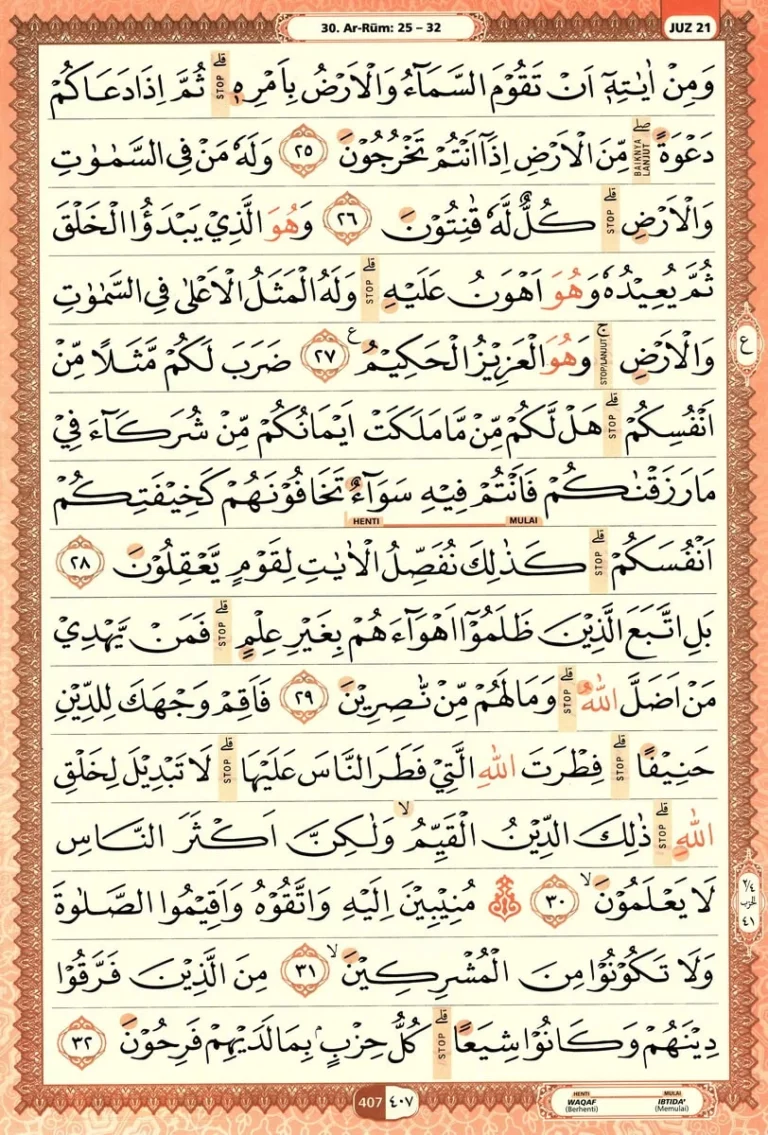 30. Ar-Rūm: 25 – 32
JUZ 21
وَمِنْ اٰيٰتِهٖٓ اَنْ تَقُوْمَ السَّمَاۤءُ وَالْاَرْضُ بِاَمْرِهٖ ۗ STOP ثُمَّ اِذَا دَعَاكُمْ
دَعْوَةً ۖ BAIKNYA LANJUT مِّنَ الْاَرْضِ اِذَآ اَنْتُمْ تَخْرُجُوْنَ ٢٥ وَلَهٗ مَنْ فِى السَّمٰوٰتِ
وَالْاَرْضِ ۗ STOP كُلٌّ لَّهٗ قٰنِتُوْنَ ٢٦ وَهُوَ الَّذِيْ يَبْدَؤُا الْخَلْقَ
ثُمَّ يُعِيْدُهٗ وَهُوَ اَهْوَنُ عَلَيْهِ ۗ STOP وَلَهُ الْمَثَلُ الْاَعْلٰى فِى السَّمٰوٰتِ
وَالْاَرْضِ ۚ STOP/LANJUT وَهُوَ الْعَزِيْزُ الْحَكِيْمُ ع ٢٧ ضَرَبَ لَكُمْ مَّثَلًا مِّنْ
اَنْفُسِكُمْ ۗ STOP هَلْ لَّكُمْ مِّنْ مَّا مَلَكَتْ اَيْمَانُكُمْ مِّنْ شُرَكَاۤءَ فِيْ
مَا رَزَقْنٰكُمْ فَاَنْتُمْ فِيْهِ سَوَاۤءٌ تَخَافُوْنَهُمْ كَخِيْفَتِكُمْ
HENTI MULAI
اَنْفُسَكُمْ ۗ STOP كَذٰلِكَ نُفَصِّلُ الْاٰيٰتِ لِقَوْمٍ يَّعْقِلُوْنَ ٢٨
بَلِ اتَّبَعَ الَّذِيْنَ ظَلَمُوْٓا اَهْوَاۤءَهُمْ بِغَيْرِ عِلْمٍ ۗ STOP فَمَنْ يَّهْدِيْ
مَنْ اَضَلَّ اللّٰهُ ۗ STOP وَمَا لَهُمْ مِّنْ نّٰصِرِيْنَ ٢٩ فَاَقِمْ وَجْهَكَ لِلدِّيْنِ
حَنِيْفًا ۗ STOP فِطْرَتَ اللّٰهِ الَّتِيْ فَطَرَ النَّاسَ عَلَيْهَا ۗ STOP لَا تَبْدِيْلَ لِخَلْقِ
اللّٰهِ ۗ STOP ذٰلِكَ الدِّيْنُ الْقَيِّمُۙ وَلٰكِنَّ اَكْثَرَ النَّاسِ
لَا يَعْلَمُوْنَۙ ٣٠ ۞ مُنِيْبِيْنَ اِلَيْهِ وَاتَّقُوْهُ وَاَقِيْمُوا الصَّلٰوةَ
وَلَا تَكُوْنُوْا مِنَ الْمُشْرِكِيْنَۙ ٣١ مِنَ الَّذِيْنَ فَرَّقُوْا
دِيْنَهُمْ وَكَانُوْا شِيَعًا ۗ STOP كُلُّ حِزْبٍۢ بِمَا لَدَيْهِمْ فَرِحُوْنَ ٣٢
ع
٢/٤
الحزب
٤١
407 ٤٠٧
HENTI MULAI
WAQAF IBTIDA'
(Berhenti) (Memulai)